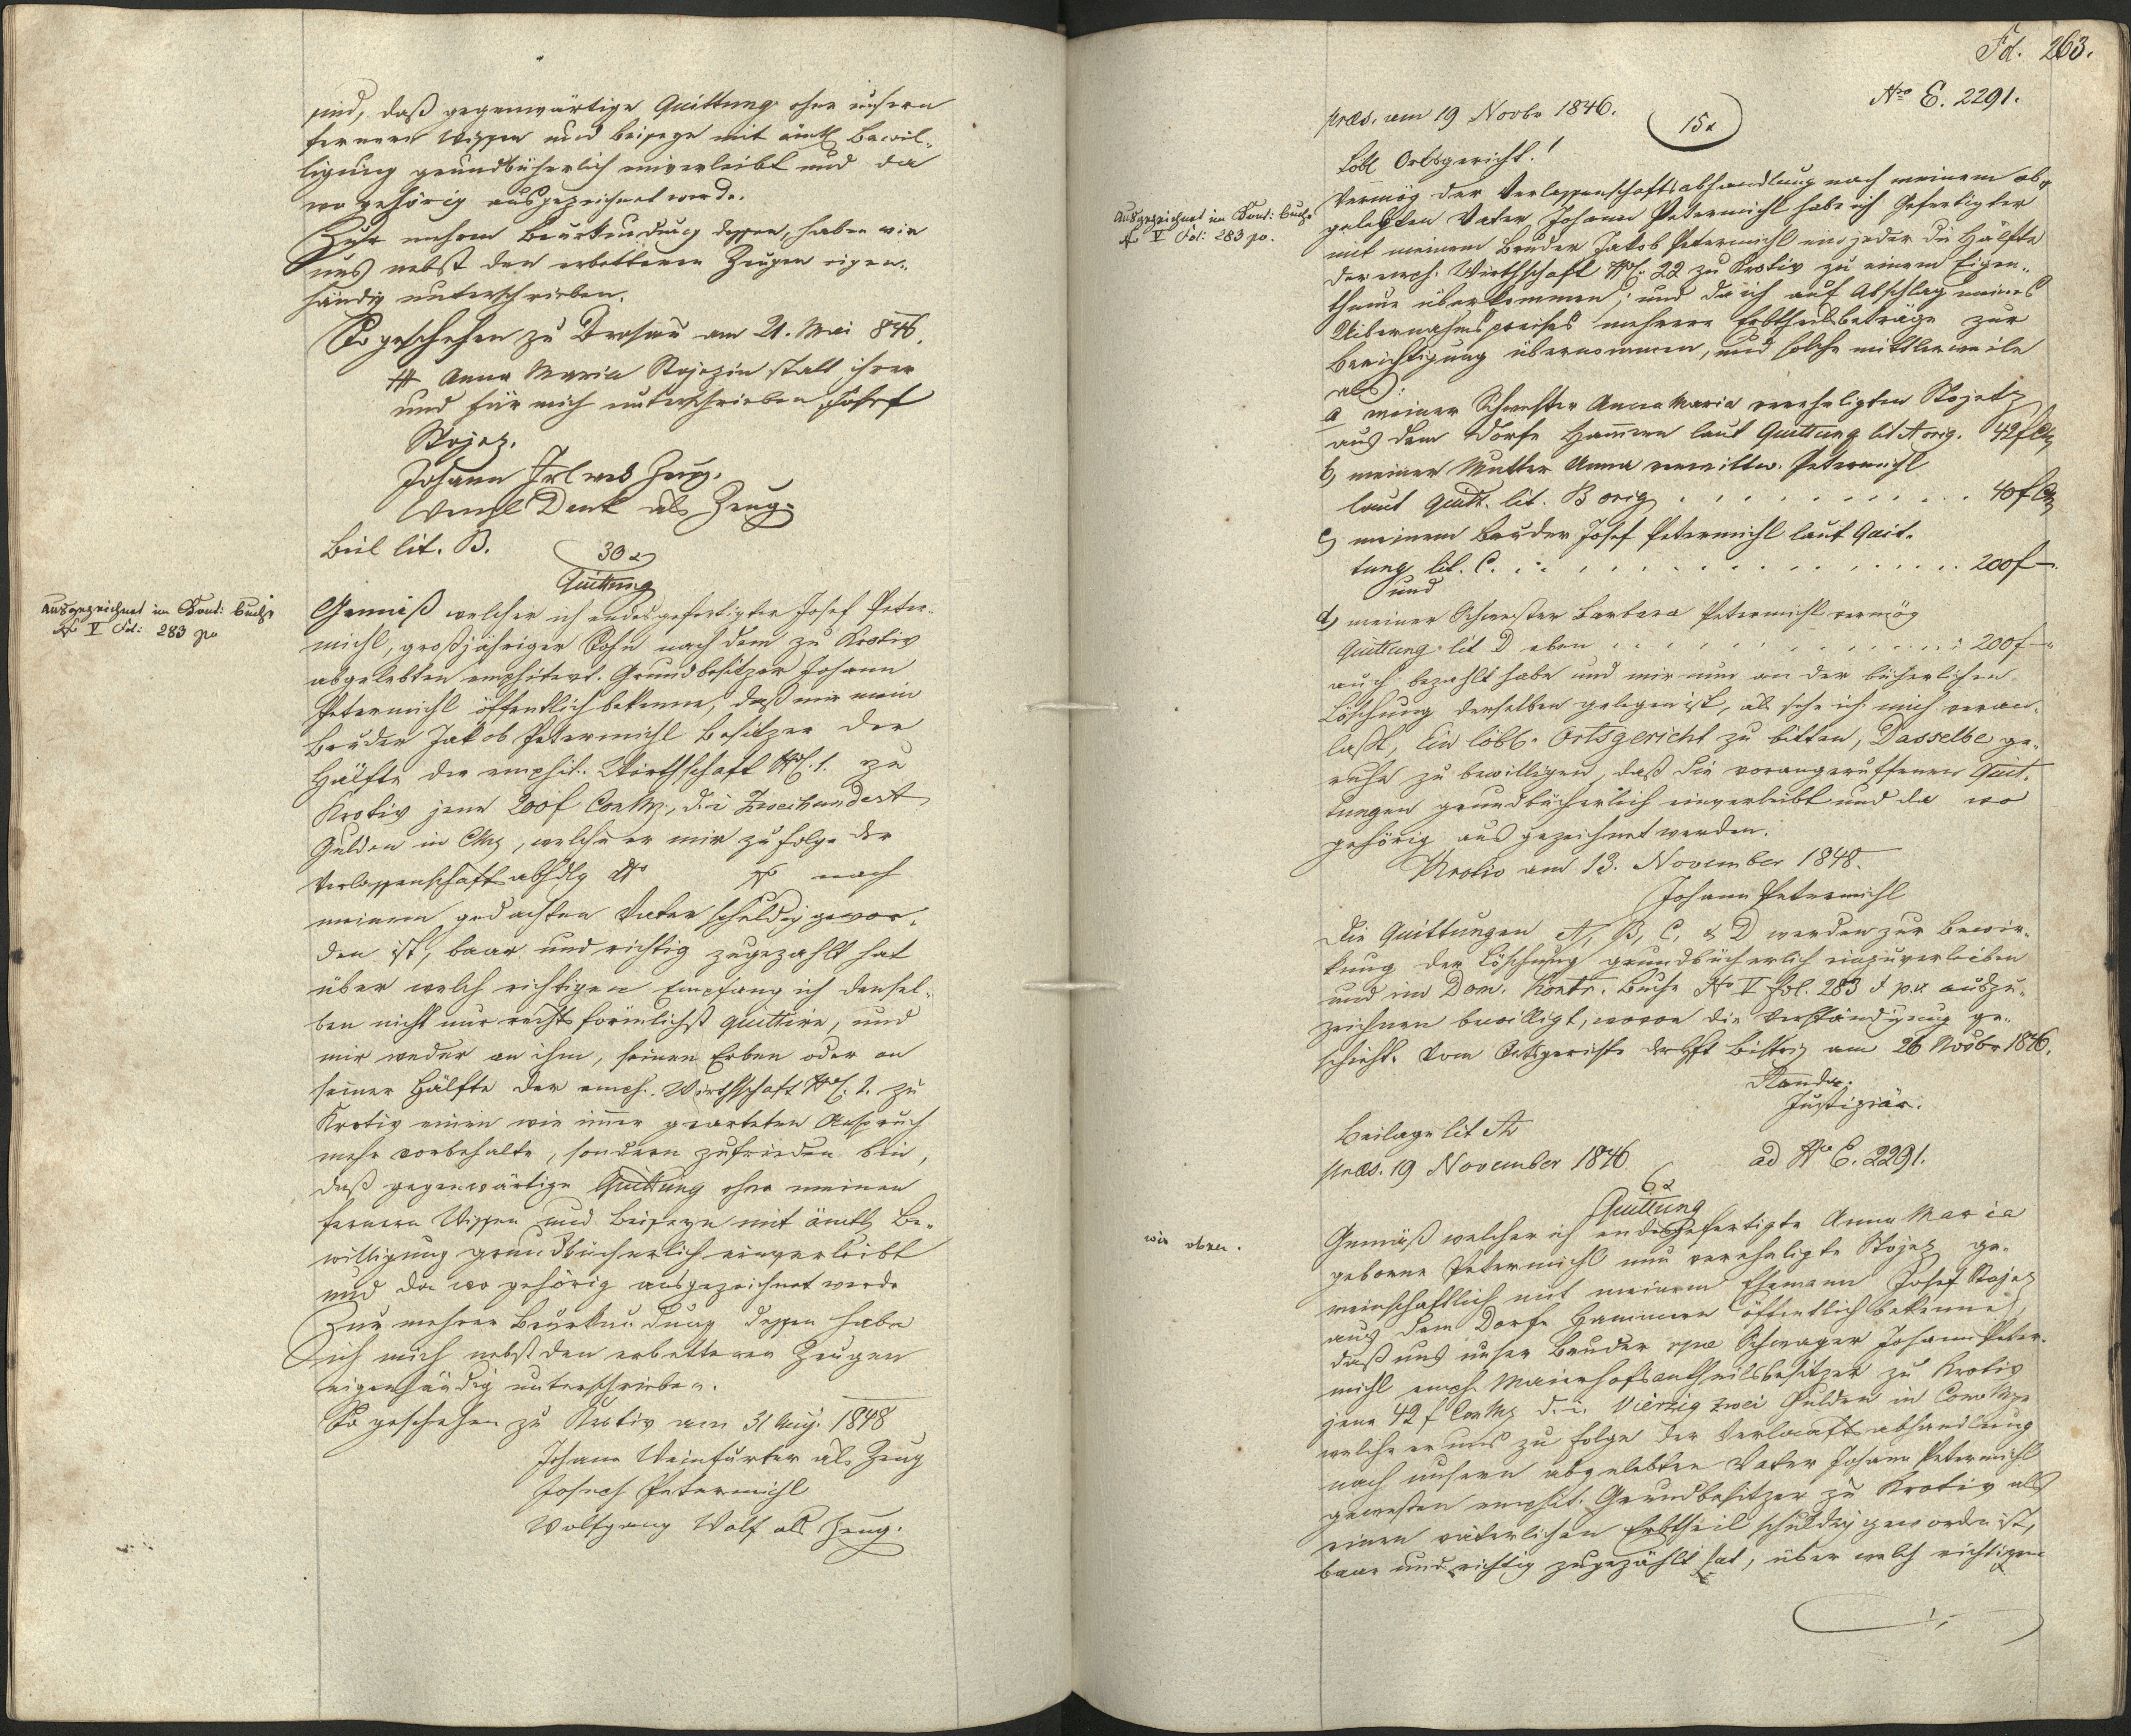 sind, daß gegenwärtige Quittung ohne unsern
fernern Wissen und Beiseyn mit ämtl Bewil-
ligung grundbücherlich einverleibt und da
wo gehörig ausgezeichnet werde.
Zur mehren Beurkundung dessen, haben wir
uns nebst den erbettenen Zeugen eigen-
händig unterschrieben.
So geschehen zu Drosau am 21. Mai 846.
## Anna Maria Stojezin statt ihrer
und für mich unterschrieben Josef
Stojez.
Johann Irl als Zeug.
Wenzl Denk als Zeug.
Beil lit. B.
30x
Quittung
Ausgezeichnet im Kont: Buche
No V Fol: 283 po
Gemäß welcher ich endesgefertigter Josef Peter-
michl, großjähriger Sohn nach dem zu Krotiv
abgelebten emphitevt. Grundbesitzer Johann
Petermichl öffentlich bekenne, daß mir mein
Bruder Jakob Petermichl Besitzer der
Hälfte der emphit. Wirthschaft NC. 1. zu
Krotiv jene 200f ConMz, d.i Zweihundert
Gulden in CMz, welche er mir zufolge der
Verlassenschaftsabhdlg No nach
meinem gedachten Vater schuldig gewor-
den ist, baar und richtig zugezahlt hat
über welch richtigen Empfang ich densel-
ben nicht nur rechtsförmlichst quittire, und
mir weder an ihm, seinen Erben oder an
seiner Hälfte der emph. Wirthschaft NC. 1. zu
Krotiv einen wie immer gearteten Anspruch
mehr vorbehalte, sondern zufrieden bin,
daß gegenwärtige Quittung ohne meinen
fernern Wissen und Beiseyn mit ämtl Be-
willigung grundbücherlich einverleibt
und da wo gehörig ausgezeichnet werde
Zur mehren Beurkundung dessen habe
ich mich nebst den erbettenen Zeugen
eigenhändig unterschrieben.
So geschehen zu Krotiv am 31 Aug. 1848
Johann Weinfurter als Zeug
Joseph Petermichl
Wolfgang Wolf als Zeug.
Fd. 263.
Nro E. 2291.
præs. am 19 Novbr 1846.
15x
Löbl Ortsgericht!
Ausgezeichnet im Kont: Buche
No V Fol: 283 po.
Vermög der Verlassenschaftsabhandlung nach meinem ab-
gelebten Vater Johann Petermichl habe ich Gefertigter
mit meinem Bruder Jakob Petermichl ein jeder die Hälfte
der emph. Wirthschaft NC. 22 zu Krotiv zu einem Eigen-
thume überkommen; und da ich auf Abschlag meines
Uibernahmspreises mehrere Erbtheilsbeträge zur
Berichtigung übernommen, und solche mittlerweile
als:
a meiner Schwester Anna Maria verehligten Stojetz
aus dem Dorfe Hammern laut Quittung lit A orig. 42f CMz
b, meiner Mutter Anna verwittw. Petermichl
laut Quitt. lit. B orig . . . . . . . . . . 40f CMz
c, meinem Bruder Josef Petermichl laut Quit-
tung lit. C. . . . . . . . . . . . . . . 200f —
und
d, meiner Schwester Barbara Petermichl vermög
Quittung lit D eben . . . . . . . . . . . . 200f —
auch bezahlt habe und mir nun an der bücherlichen
Löschung derselben gelegen ist, als sehe ich mich veran-
laßt, Ein löbl. Ortsgericht zu bitten, Dasselbe ge-
ruhe zu bewilligen, daß die vorangeruffenen Quit-
tungen grundbücherlich einverleibt und da wo
gehörig ausgezeichnet werden.
Krotiv am 13. November 1848.
Johann Petermichl
Die Quittungen A, B, C, & D werden zur Bewir-
kung der Löschung grundbücherlich einzuverleiben
und im Dom. Kontr. Buche No V Fol. 283 & po auszu-
zeichnen bewilligt, wovon die Verständigung ge-
schieht. Vom Ortsgerichte der Hft Bistritz am 26 Novbr 1846.
Justiziär.
Beilage lit A
præs. 19 November 1846. ad No E. 2291.
6x
Quittung
wie oben.
Gemäß welcher ich endesgefertigte Anna Maria
geborne Petermichl nun verehligte Stojez ge-
meinschaftlich mit meinem Ehemann Josef Stojez
aus dem Dorfe Hammern öffentlich bekennen,
daß uns unser Bruder rpve Schwager Johann Peter-
michl emph. Maierhofsantheilsbesitzer zu Krotiv
jene 42 f ConMz d.i. Vierzig zwei Gulden in ConvMze
welche er uns zu folge der Verlaaftsabhandlung
nach unsern abgelebten Vater Johann Petermichl
gewesten emphit. Grundbesitzer zu Krotiv als
einen väterlichen Erbtheil schuldig geworden ist,
baar und richtig zugezählt hat, über welch richtigen